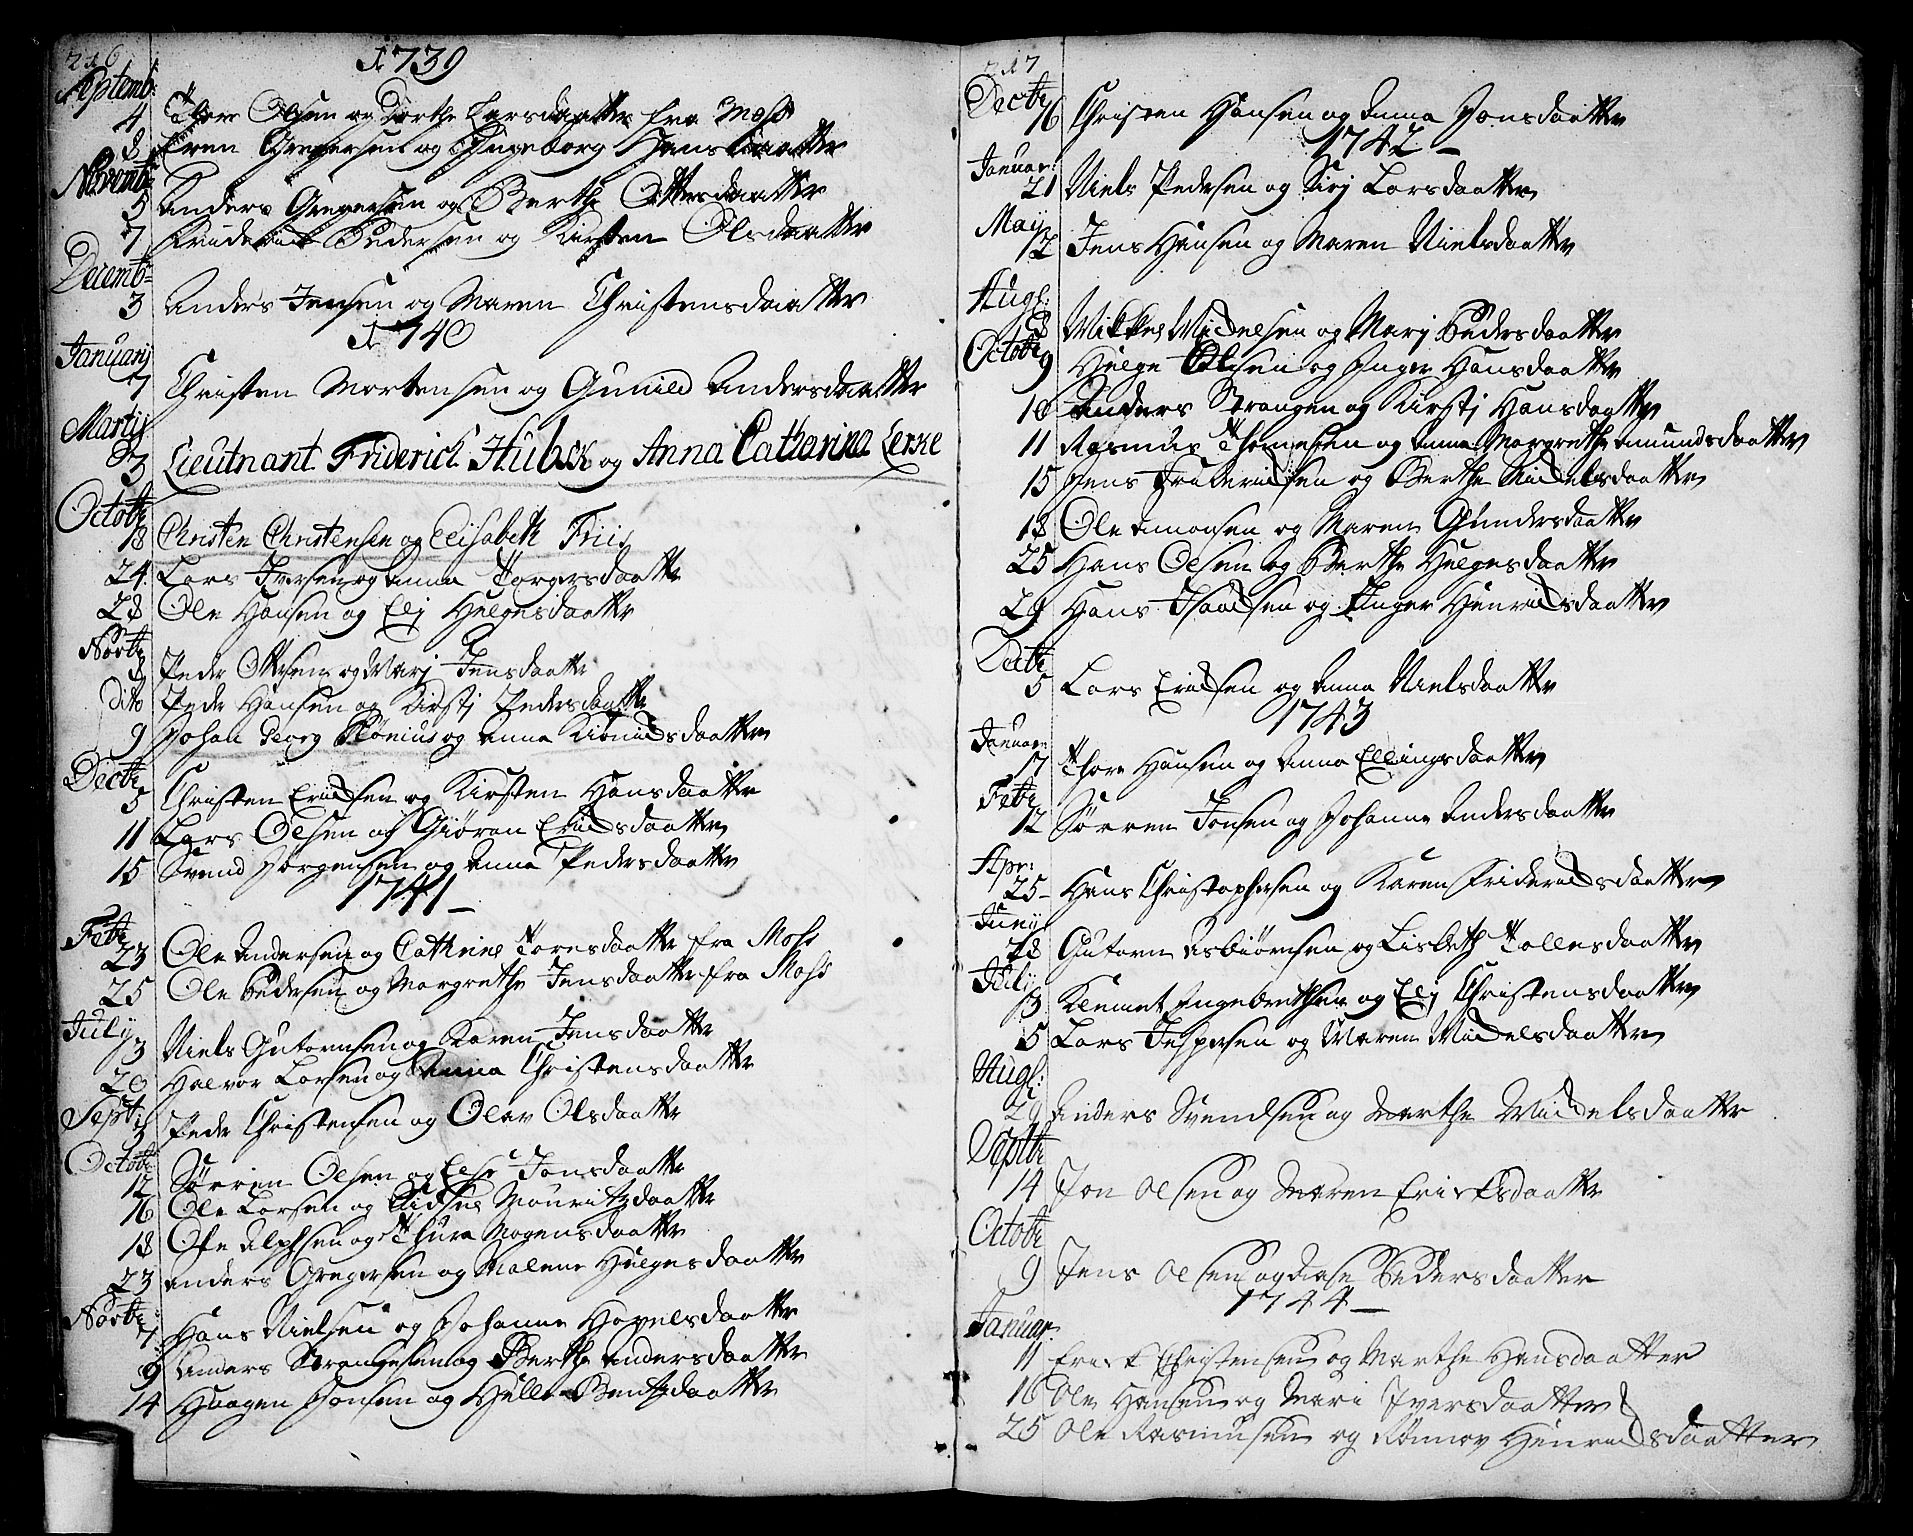 216
1739
Septemb:
4 Thore Olsen og Dorthe Larsdaatter fra Moss
8 Even Gregersen og Ingeborg Hansdaatter
Novemb:
5 Anders Gregersen og Berthe Ottersdaatter
7 Friderick Pedersen og Kirsten Olsdaatter
Decemb:
3 Anders Jensen og Maren Christensdaatter
1740
Januarij
7 Christen Mortensen og Gunild Andersdaatter
Martij
3 Lieutnant Friderick Hübsch og Anna Catharina Lerke
Octobr
18 Christen Christensen og Elisabeth Friis
24 Lars Iversen og Anna Torgersdaatter
28 Ole Hansen og Elj Helgesdaatter
Novbr
8 Peder Ottesen og Marj Jensdaatter
dito Peder Hansen og Kirstj Pedersdaatter
9 Johan Georg og Anna
Decbr
5 Christen Erichsen og Kirsten Hansdaatter
11 Lars Olsen og Giøran Erichsdaatter
15 Svend Jørgensen og Anna Pedersdaatter
1741
Febr
23 Ole Andersen og Cathrine Toresdaatter fra Moss
25 Ole Pedersen og Margrethe Jensdaatter fra Moss
July
3 Niels Gutormsen og Karen Jensdaatter
20 Halvor Larsen og Anna Christensdaatter
Sept:
3 Peder Christensen og Olav Olsdaatter
Octobr
12 Sørren Olsen og Else Jonsdaatter
16 Ole Larsen og Mouritzdaatter
18 Ole og Thura Mogensdaatter
23 Anders Gregersen og Malene Helgesdaatter
Novbr:
7 Hans Nielsen og Johanne Hovelsdaatter
9 Anders Strangesen og Berthe Andersdaatter
14 Haagen Jonsen og Helle Bentzdaatter
217
Decbr
16 Christen Hansen og Anna Jonsdaatter
1742
Januar:
21 Niels Pedersen og Sirj Larsdaatter
Maij
12 Jens Hansen og Maren Nielsdaatter
Aug:
8 Mikkel Michelsen og Marj Pedersdaatter
Octobr
9 Helge Olsen og Inger Hansdaatter
10 Anders Strangen og Kirstj Hansdaatter
11 Rasmus Thomesen og Anna Margrethe Amundsdaatter
15 Jens Friderichsen og Berthe Michelsdaatter
18 Ole Amonsen og Maren Gundersdaatter
25 Hans Olsen og Berthe Helgesdaatter
29 Hans Isachsen og Inger Henrichsdaatter
Decbr
5 Lars Erichsen og Anna Nielsdaatter
1743
Januar:
7 Thore Hansen og Anna Ellingsdaatter
Febr
12 Sørren Jonsen og Johanne Andersdaatter
Apr:
25 Hans Christophersen og Karen Friderichsdaatter
Junij
28 Gutorm Asbiørnsen og Lisbeth Tollesdaatter
July
3 Klemet Engebrethsen og Elj Christensdaatter
5 Lars Jespersen og Maren Michelsdaatter
Aug:
29 Anders Svendsen og Marthe Michelsdaatter
Septbr
14 Jon Olsen og Maren Ericksdaatter
Octobr
9 Jens Olsen og Lisse Pedersdaatter
1744
Januar:
11 Erick Christensen og Marthe Hansdaatter
16 Ole Hansen og Mari Iversdaatter
25 Ole Rasmusen og Rønnov Henrichsdaatter